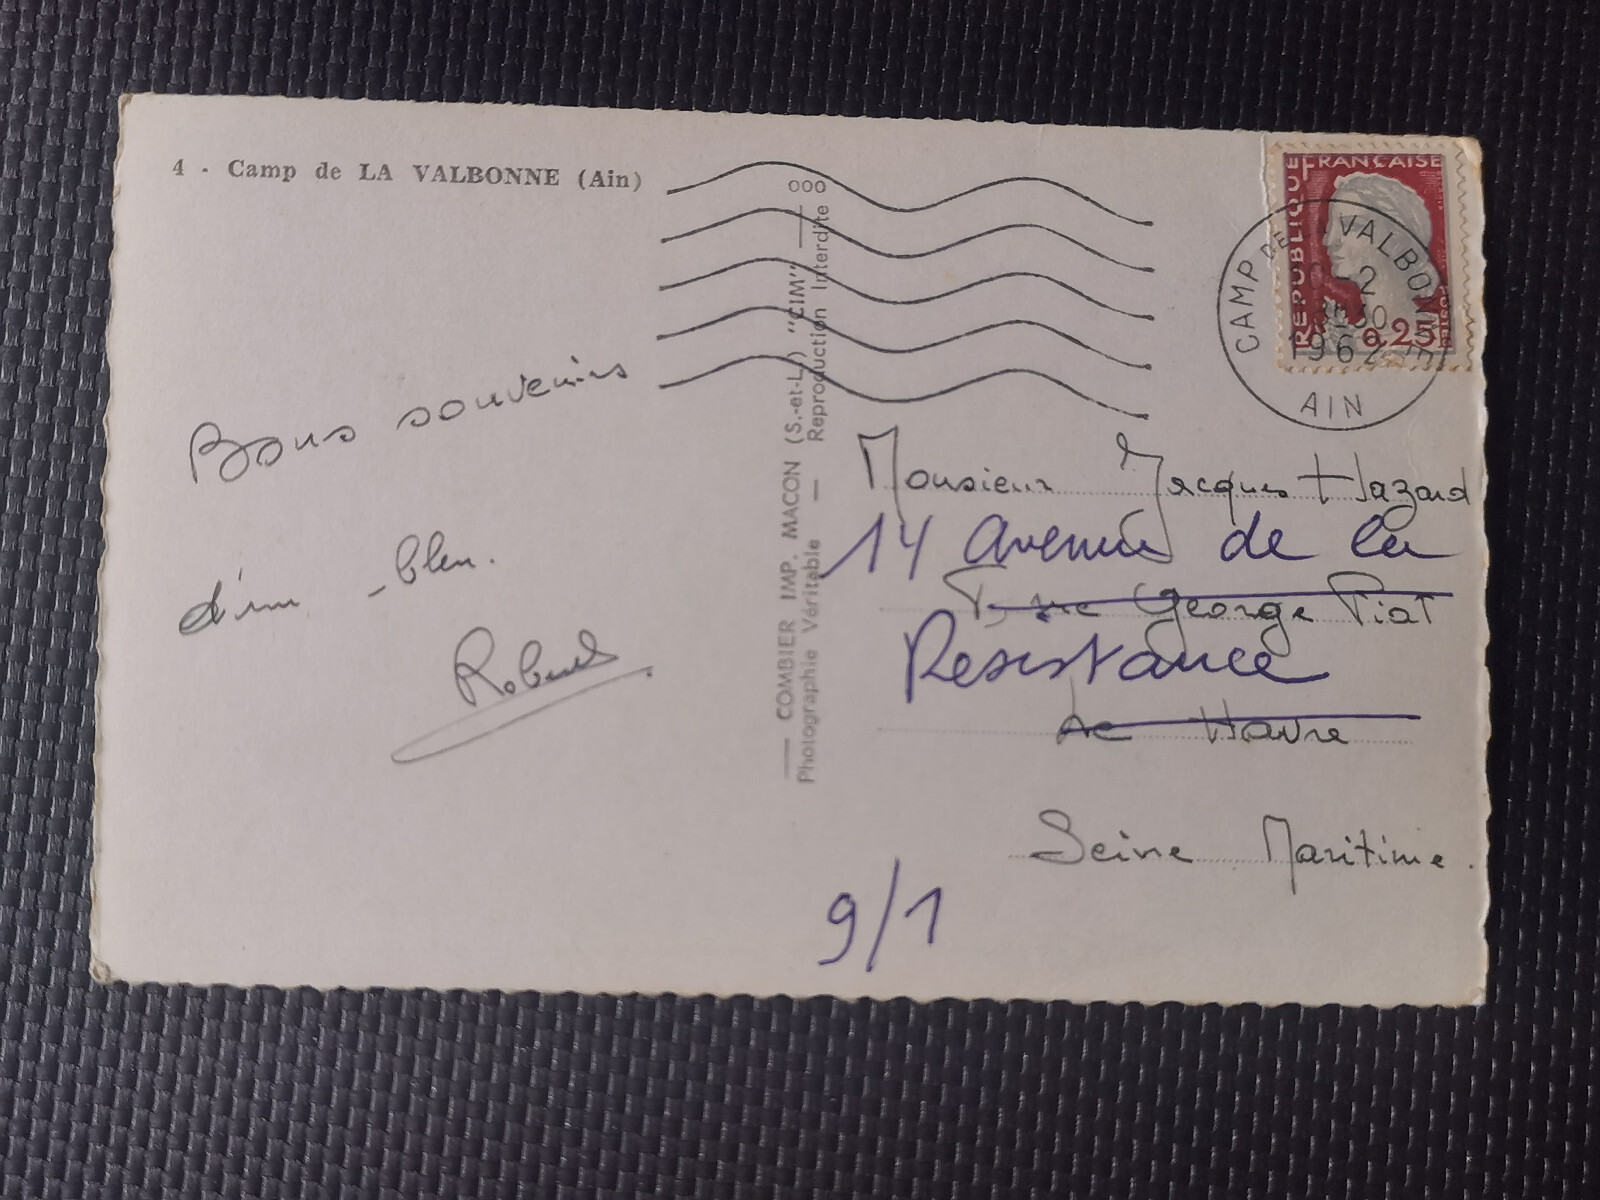 4 - Camp de LA VALBONNE (Ain)
000
REPUBLIQUE FRANÇAISE
0,25
CAMP DE LA VALBONNE
-2
1962
AIN
Bons souvenirs
d'un bleu.
Robert
COMBIER IMP. MACON (S.-et-L.) "CIM"
Photographie Véritable — Reproduction Interdite
Monsieur Jacques Hazard
14 avenue de la
rue George Piat
Resistance
Le Havre
Seine Maritime.
9/1